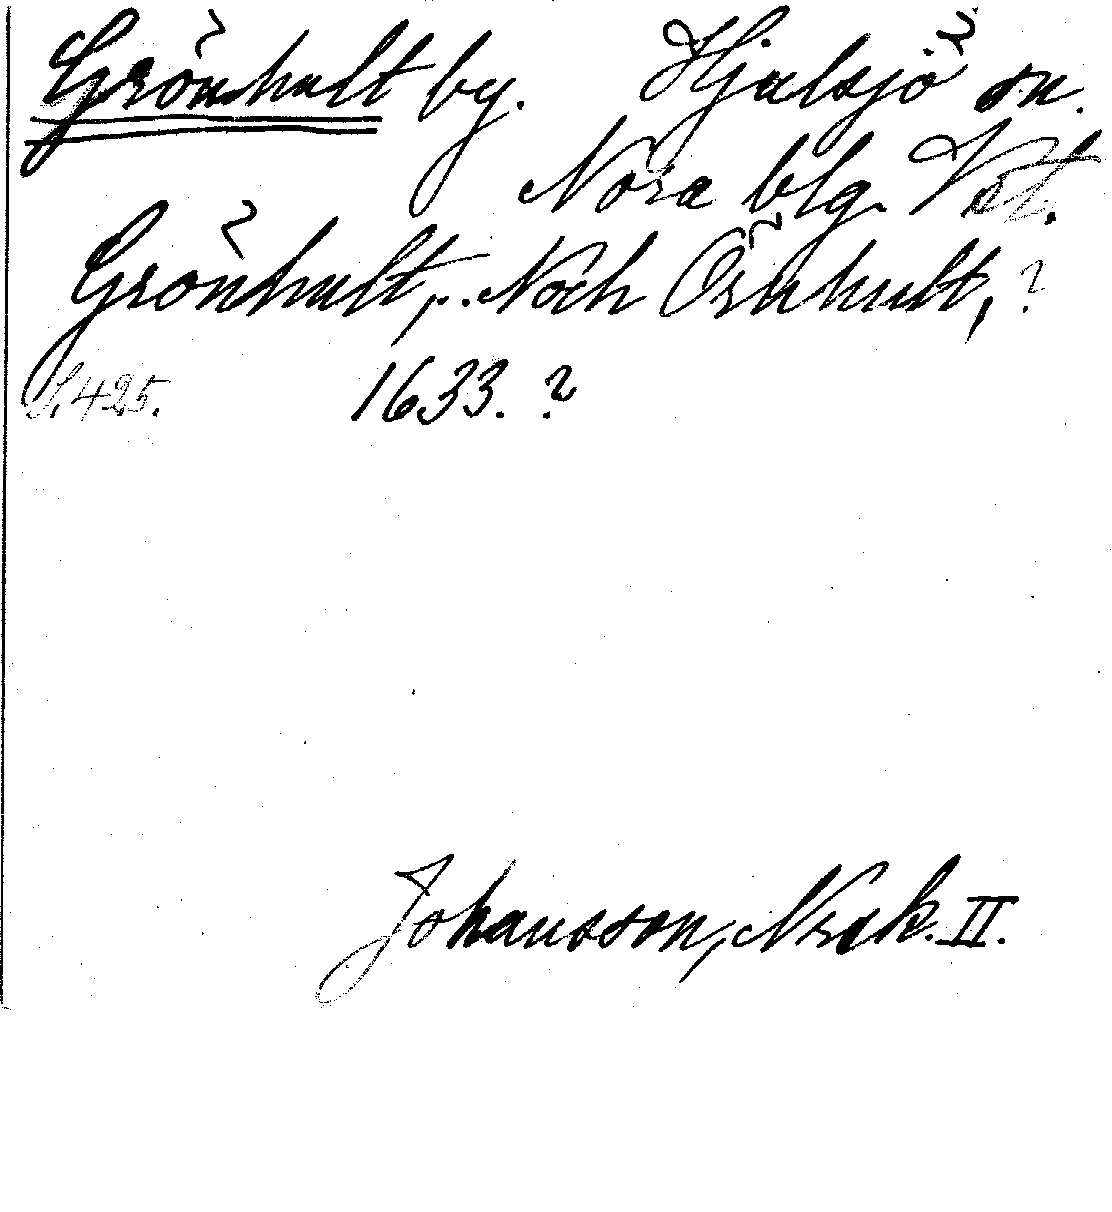 Grönhult by. Hjulsjö sn.
Nora blg. Vstl.
Grönhult, .. Noch Örnhult, ?
S. 425. 1633. ?
Johansson, Nrak. II.